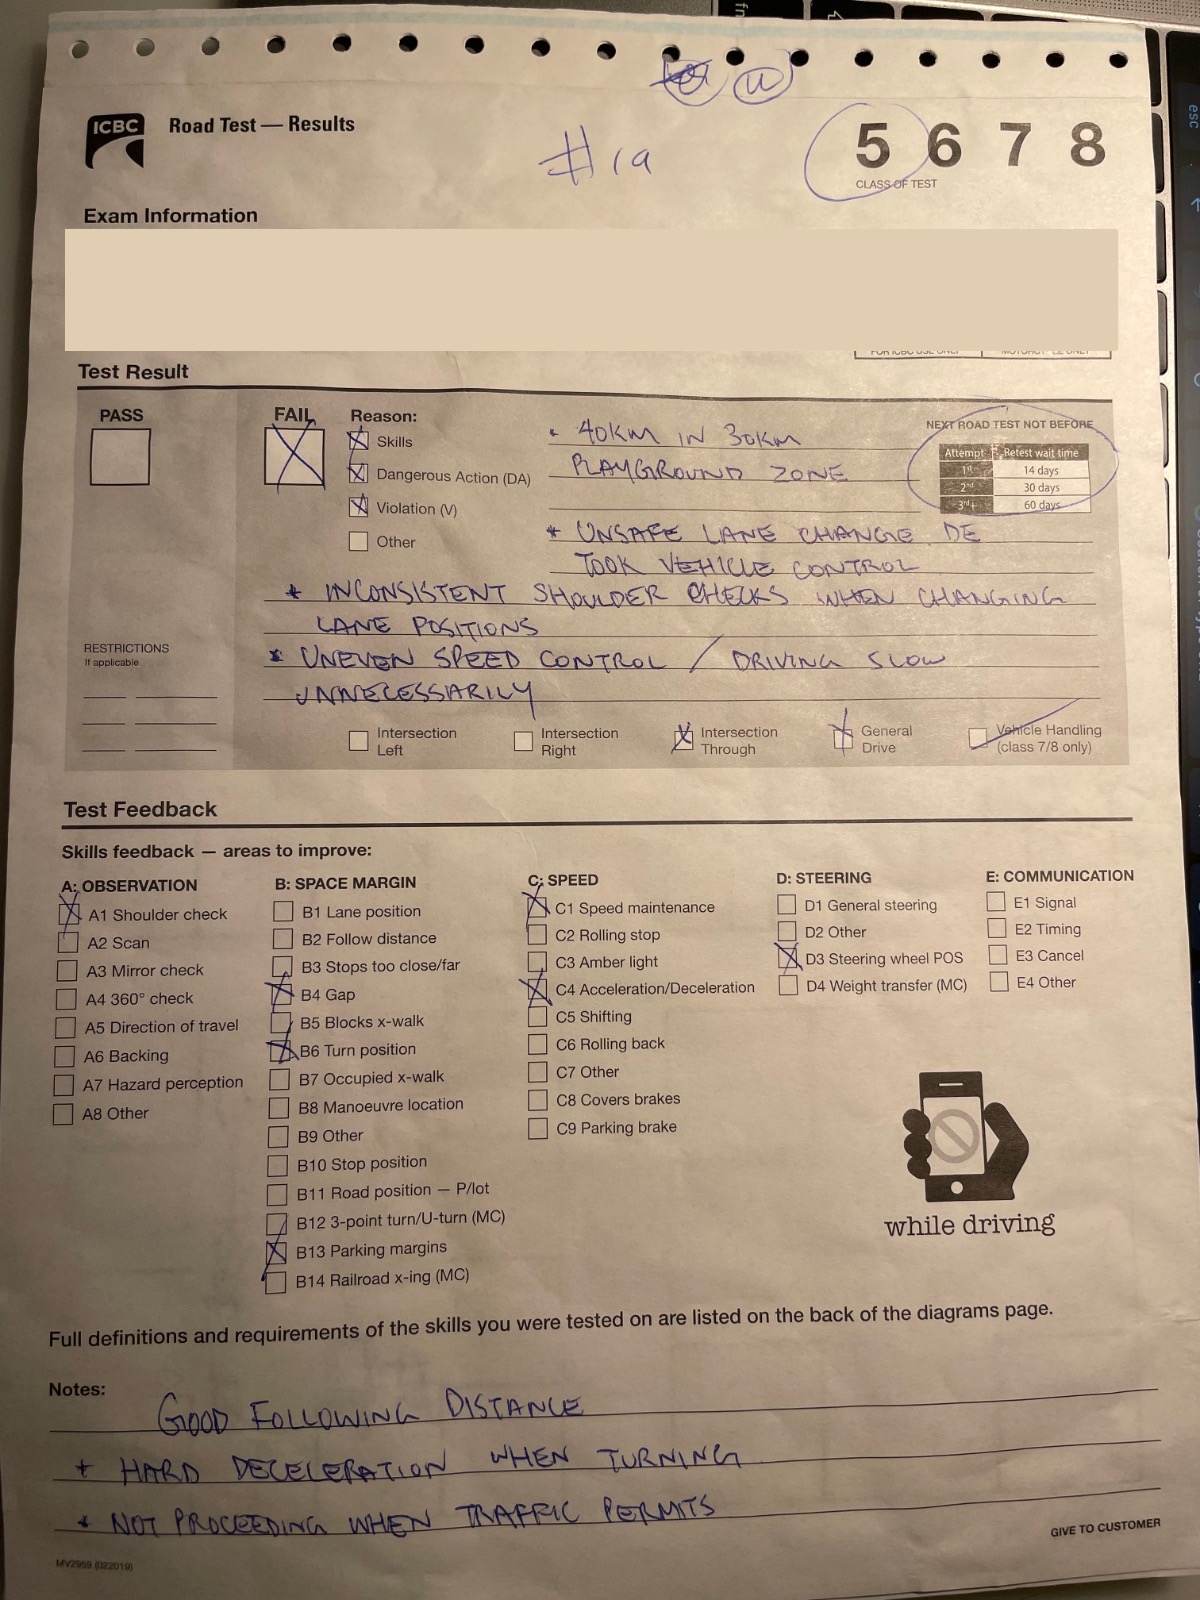 ICBC
Road Test — Results
#19
5 6 7 8
CLASS OF TEST
Exam Information
Test Result
PASS
FAIL
Reason:
Skills
Dangerous Action (DA)
Violation (V)
Other
* 40KM IN 30KM
PLAYGROUND ZONE
* UNSAFE LANE CHANGE DE
TOOK VEHICLE CONTROL
NEXT ROAD TEST NOT BEFORE
Attempt Retest wait time
1st 14 days
2nd 30 days
3rd+ 60 days
* INCONSISTENT SHOULDER CHECKS WHEN CHANGING
LANE POSITIONS
* UNEVEN SPEED CONTROL / DRIVING SLOW
UNNECESSARILY
RESTRICTIONS
If applicable
Intersection Left
Intersection Right
Intersection Through
General Drive
Vehicle Handling (class 7/8 only)
Test Feedback
Skills feedback — areas to improve:
A: OBSERVATION
A1 Shoulder check
A2 Scan
A3 Mirror check
A4 360° check
A5 Direction of travel
A6 Backing
A7 Hazard perception
A8 Other
B: SPACE MARGIN
B1 Lane position
B2 Follow distance
B3 Stops too close/far
B4 Gap
B5 Blocks x-walk
B6 Turn position
B7 Occupied x-walk
B8 Manoeuvre location
B9 Other
B10 Stop position
B11 Road position — P/lot
B12 3-point turn/U-turn (MC)
B13 Parking margins
B14 Railroad x-ing (MC)
C: SPEED
C1 Speed maintenance
C2 Rolling stop
C3 Amber light
C4 Acceleration/Deceleration
C5 Shifting
C6 Rolling back
C7 Other
C8 Covers brakes
C9 Parking brake
D: STEERING
D1 General steering
D2 Other
D3 Steering wheel POS
D4 Weight transfer (MC)
E: COMMUNICATION
E1 Signal
E2 Timing
E3 Cancel
E4 Other
while driving
Full definitions and requirements of the skills you were tested on are listed on the back of the diagrams page.
Notes:
GOOD FOLLOWING DISTANCE
* HARD DECELERATION WHEN TURNING
* NOT PROCEEDING WHEN TRAFFIC PERMITS
MV2959 (022019)
GIVE TO CUSTOMER
esc